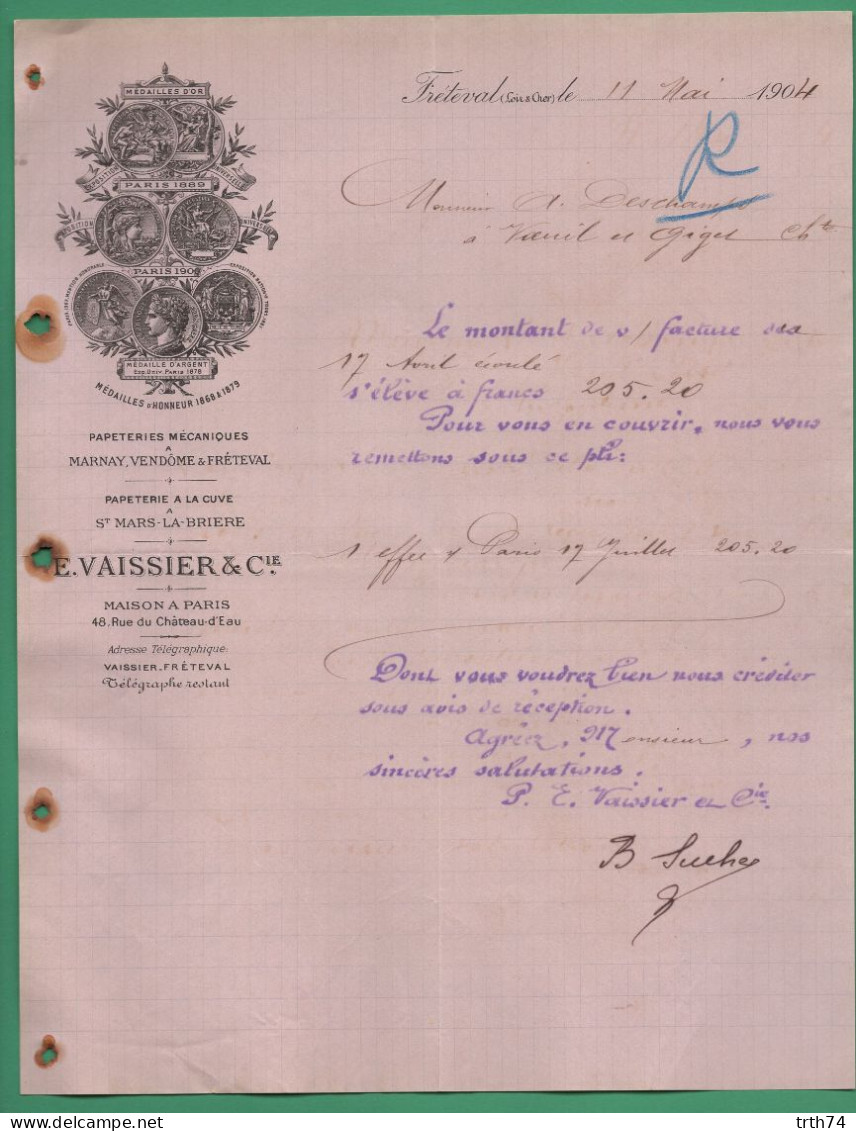 Fréteval (Loir & Cher) le 11 Mai 1904
R
MÉDAILLES D'OR
EXPOSITION UNIVERSELLE
PARIS 1889
EXPOSITION UNIVERSELLE
PARIS 1900
MÉDAILLE D'ARGENT
Exp. Univ. Paris 1878
MÉDAILLES D'HONNEUR 1868 & 1879
PAPETERIES MÉCANIQUES
A
MARNAY, VENDÔME & FRÉTEVAL
PAPETERIE A LA CUVE
A
ST MARS-LA-BRIERE
E. VAISSIER & CIE.
MAISON A PARIS
48, Rue du Château-d'Eau
Adresse Télégraphique:
VAISSIER. FRÉTEVAL
Télégraphe restant
Monsieur A. Deschamps
à Vœuil et Giget Chte
Le montant de v/ facture du
17 Avril écoulé
s'élève à francs 205.20
Pour vous en couvrir, nous vous
remettons sous ce pli:
1 effet s/ Paris 17 Juillet 205.20
Dont vous voudrez bien nous créditer
sous avis de réception.
Agréez, Monsieur, nos
sincères salutations.
P. E. Vaissier et Cie.
trth74